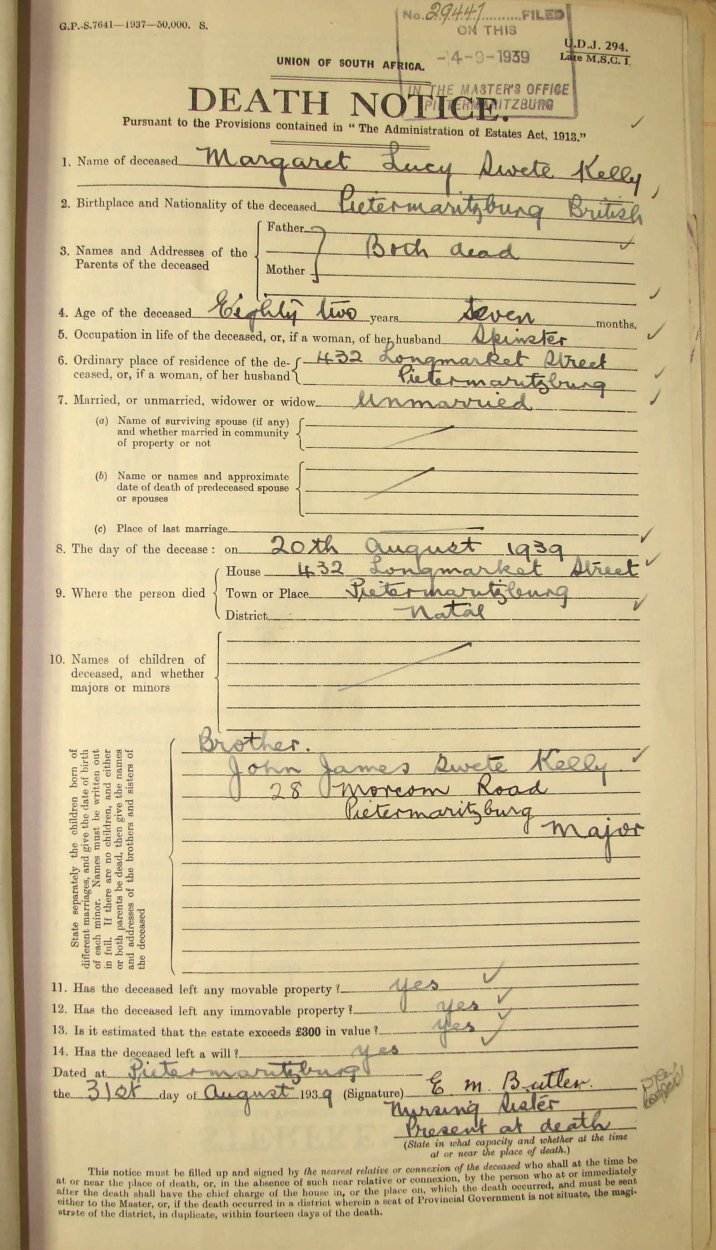 G.P.-S.7641—1937—50,000. S.
No. 29447 FILED
ON THIS
-4-9-1939
IN THE MASTER'S OFFICE
PIETERMARITZBURG
U.D.J. 294.
Late M.S.C. 1.
UNION OF SOUTH AFRICA.
DEATH NOTICE.
Pursuant to the Provisions contained in "The Administration of Estates Act, 1913."
1. Name of deceased Margaret Lucy Swete Kelly
2. Birthplace and Nationality of the deceased Pietermaritzburg British
3. Names and Addresses of the Parents of the deceased
Father
Both dead
Mother
4. Age of the deceased Eighty two years seven months.
5. Occupation in life of the deceased, or, if a woman, of her husband Spinster
6. Ordinary place of residence of the de- 432 Longmarket Street
ceased, or, if a woman, of her husband Pietermaritzburg
7. Married, or unmarried, widower or widow Unmarried
(a) Name of surviving spouse (if any)
and whether married in community
of property or not
(b) Name or names and approximate
date of death of predeceased spouse
or spouses
(c) Place of last marriage
8. The day of the decease: on 20th August 1939
9. Where the person died
House 432 Longmarket Street
Town or Place Pietermaritzburg
District Natal
10. Names of children of
deceased, and whether
majors or minors
State separately the children born of
different marriages, and give the date of birth
of each minor. Names must be written out
in full. If there are no children, and either
or both parents be dead, then give the names
and addresses of the brothers and sisters of
the deceased
Brother.
John James Swete Kelly.
28 Morcom Road
Pietermaritzburg
Major
11. Has the deceased left any movable property? yes
12. Has the deceased left any immovable property? yes
13. Is it estimated that the estate exceeds £300 in value? yes
14. Has the deceased left a will? yes
Dated at Pietermaritzburg
the 31st day of August 1939 (Signature) E. M. Butler.
Nursing Sister
Present at death
(State in what capacity and whether at the time
at or near the place of death.)
This notice must be filled up and signed by the nearest relative or connexion of the deceased who shall at the time be
at or near the place of death, or, in the absence of such near relative or connexion, by the person who at or immediately
after the death shall have the chief charge of the house in, or the place on, which the death occurred, and must be sent
either to the Master, or, if the death occurred in a district wherein a seat of Provincial Government is not situate, the magi-
strate of the district, in duplicate, within fourteen days of the death.